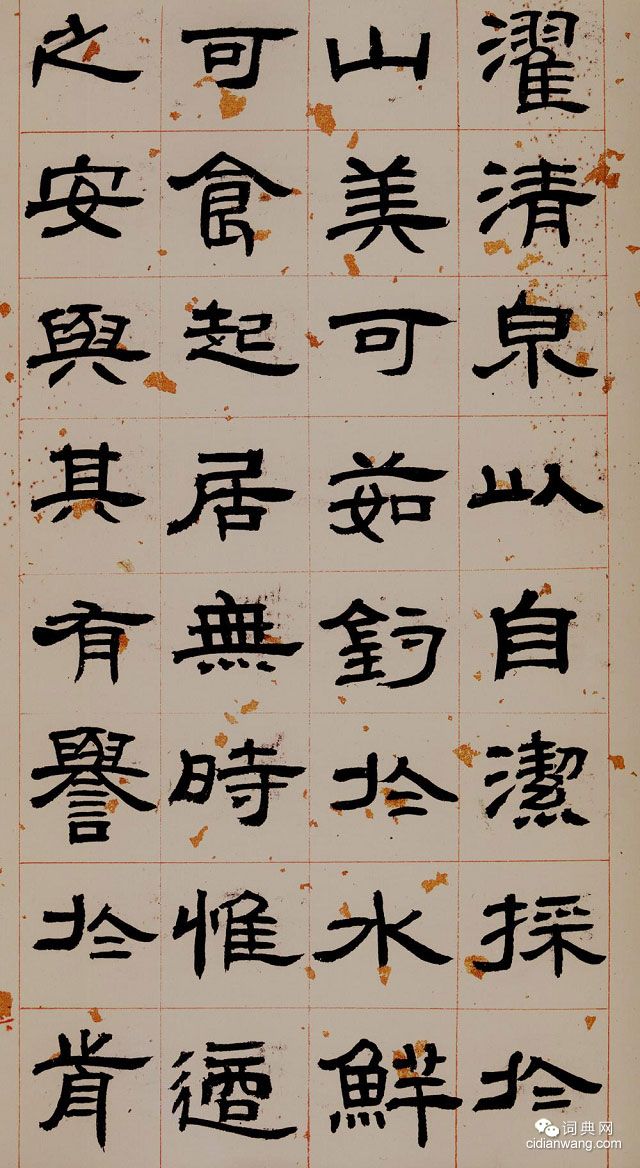 濯清泉以自潔採於
山美可茹釣於水鮮
可食起居無時惟適
之安與其有譽於前
词典网
cidianwang.com